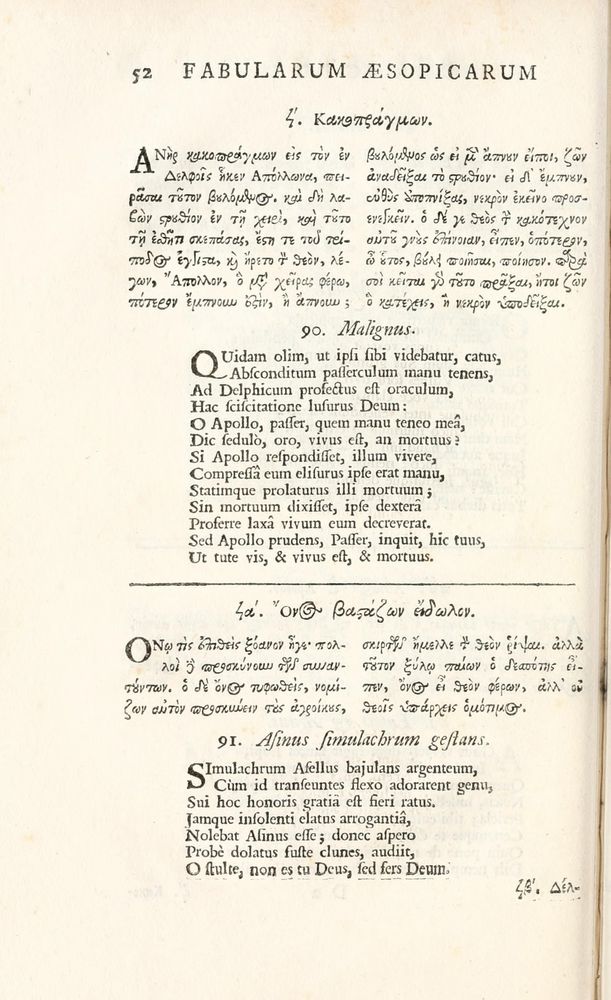 52 FABULARUM ÆSOPICARUM
ϟʹ. Κακοπράγμων.
ΑΝὴρ κακοπράγμων εἰς τὸν ἐν
Δελφοῖς ἧκεν Ἀπόλλωνα, πει-
ρᾶσαι τοῦτον βουλόμενος. καὶ δὴ λα-
βὼν στρουθίον ἐν τῇ χειρὶ, καὶ τοῦτο
τῇ ἐσθῆτι σκεπάσας, ἔστη τε τοῦ τρί-
ποδος ἔγγιστα, καὶ ἤρετο τὸν θεὸν, λέ-
γων, Ἄπολλον, ὃ μετὰ χεῖρας φέρω,
πότερον ἔμπνουν ἐστὶν, ἢ ἄπνουν;
βουλόμενος ὡς εἰ μὲν ἄπνουν εἴποι, ζῶν
ἀναδεῖξαι τὸ στρουθίον· εἰ δ' ἔμπνουν,
εὐθὺς ἀποπνίξας, νεκρὸν ἐκεῖνο προσ-
ενεγκεῖν. ὁ δέ γε θεὸς τὴν κακότεχνον
αὐτοῦ γνοὺς ἐπίνοιαν, εἶπεν, ὁπότερον,
ὦ οὗτος, βούλει ποιῆσαι, ποίησον. παρὰ
σοὶ κεῖται γὰρ τοῦτο πρᾶξαι, ἤτοι ζῶν
ὃ κατέχεις, ἢ νεκρὸν ὑποδεῖξαι.
90. Malignus.
QUidam olim, ut ipsi sibi videbatur, catus,
Absconditum passerculum manu tenens,
Ad Delphicum profectus est oraculum,
Hac sciscitatione lusurus Deum:
O Apollo, passer, quem manu teneo meâ,
Dic sedulò, oro, vivus est, an mortuus?
Si Apollo respondisset, illum vivere,
Compressâ eum elisurus ipse erat manu,
Statimque prolaturus illi mortuum;
Sin mortuum dixisset, ipse dexterâ
Proferre laxâ vivum eum decreverat.
Sed Apollo prudens, Passer, inquit, hic tuus,
Ut tute vis, & vivus est, & mortuus.
ϟαʹ. Ὄνος βαστάζων εἴδωλον.
ΟΝῳ τὶς ἐπιθεὶς ξόανον ἦγε· πολ-
λοὶ δὲ προσεκύνουν τῶν συναν-
τώντων. ὁ δὲ ὄνος τυφωθεὶς, νομί-
ζων αὐτὸν προσκυνεῖν τοὺς ἀγροίκους,
σκιρτῶν ἤμελλε τὸν θεὸν ῥίψαι. ἀλλὰ
τοῦτον ξύλῳ παίων ὁ δεσπότης εἶ-
πεν, ὄνος εἶ θεὸν φέρων, ἀλλ' οὐ
θεοῖς ὑπάρχεις ὁμότιμος.
91. Asinus simulachrum gestans.
SImulachrum Asellus bajulans argenteum,
Cùm id transeuntes flexo adorarent genu,
Sui hoc honoris gratiâ est fieri ratus.
Jamque insolenti elatus arrogantiâ,
Nolebat Asinus esse; donec aspero
Probè dolatus fuste clunes, audiit,
O stulte, non es tu Deus, sed fers Deum.
ϟβʹ. Δέλ-